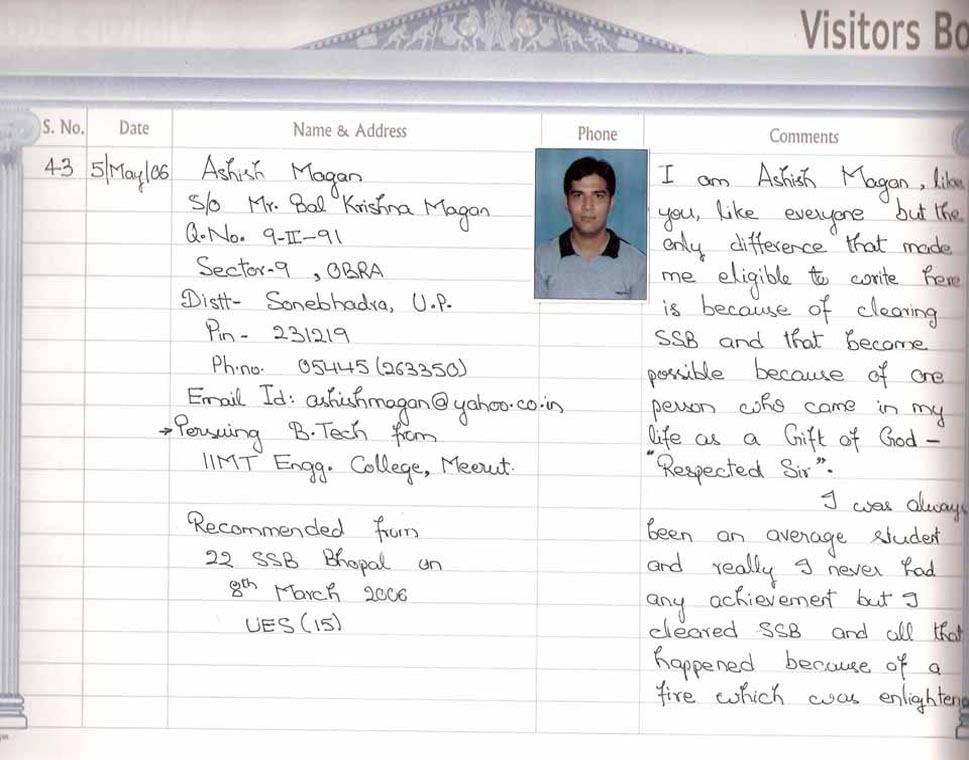 Visitors Bo
S. No.
Date
Name & Address
Phone
Comments
43
5/May/06
Ashish Magan
S/o Mr. Bal Krishna Magan
Q.No. 9-II-91
Sector-9 , OBRA
Distt- Sonebhadra, U.P.
Pin - 231219
Ph.no. 05445 (263350)
Email Id: ashishmagan@yahoo.co.in
→ Persuing B.Tech from
IIMT Engg. College, Meerut.
Recommended from
22 SSB Bhopal on
8th March 2006
UES (15)
I am Ashish Magan, like
you, like everyone but the
only difference that made
me eligible to write here
is because of clearing
SSB and that become
possible because of one
person who came in my
life as a Gift of God –
"Respected Sir".
I was always
been an average student
and really I never had
any achievement but I
cleared SSB and all that
happened because of a
fire which was enlighten